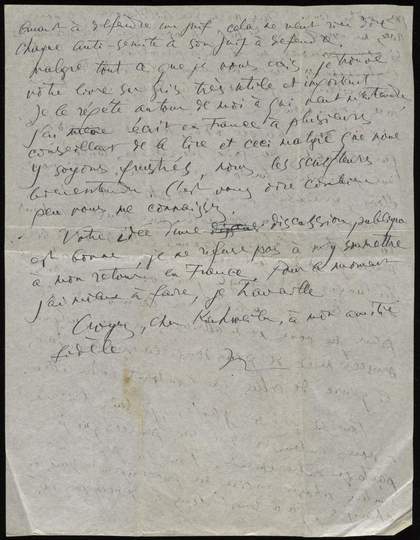 quant à défendre un juif, cela ne veut rien dire
chaque anti-semite a son juif à défendre.
malgré tout ce que je vous écris, je trouve
votre livre sur Gris très utile et important
Je le répète autour de moi à qui veut m'entendre
j'ai même écrit en France à plusieurs
conseillant de le lire et ceci malgré que nous
y soyons frustrés, nous les sculpteurs
bien entendu. C'est vous dire combien
peu vous me connaissez.
Votre idée d'une discussion publique
est bonne, je ne refuse pas à m'y soumettre
à mon retour en France. Pour le moment
j'ai mieux à faire, je travaille
Croyez, cher Kahnweiler, à mon amitié
fidèle